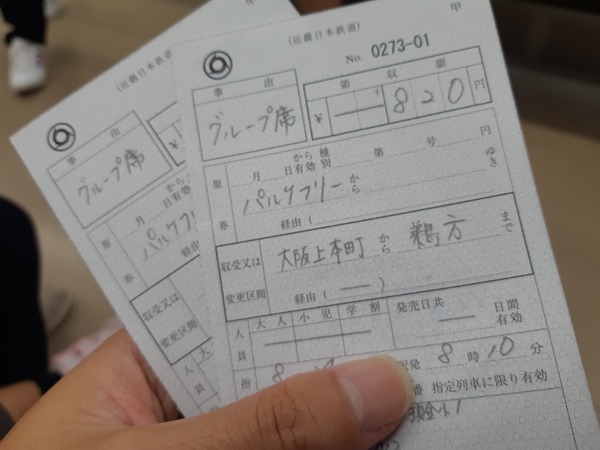 甲
(近畿日本鉄道)
No. 0273-01
事由
領収額
グループ席
¥ 千 820 円
原券
月 日 から有効 種別 第 号 円
パルケフリー から ゆき
経由(
収受又は変更区間
大阪上本町 から 鵜方 まで
経由( ― )
人員 大人 小児 学割
発売日共 ― 日間有効
指 8
駅発 8時10分
番 指定列車に限り有効
甲
(近畿日本鉄道)
事由
グループ席
¥
原券
月 日
から
パルケフリ
経由(
収受又は
変更区間
人員 大
指